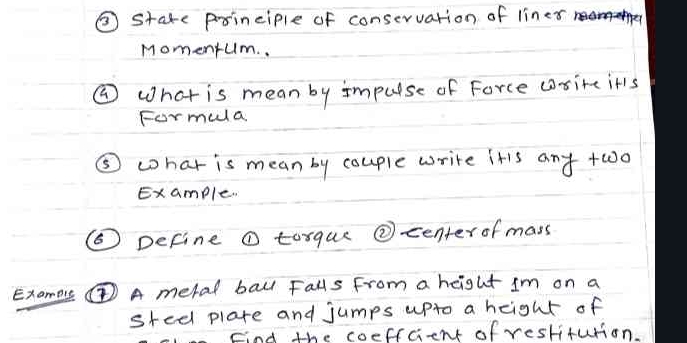 ③ State Principle of conservation of liner
Momentum..
④ what is mean by impulse of Force write itis
Formula
⑤ what is mean by couple write itis any two
Example..
⑥ Define ① torque ② center of mass
Example ⑦ A metal ball Falls From a height 1m on a
steel plate and jumps upto a height of
Find the coefficient of restitution.